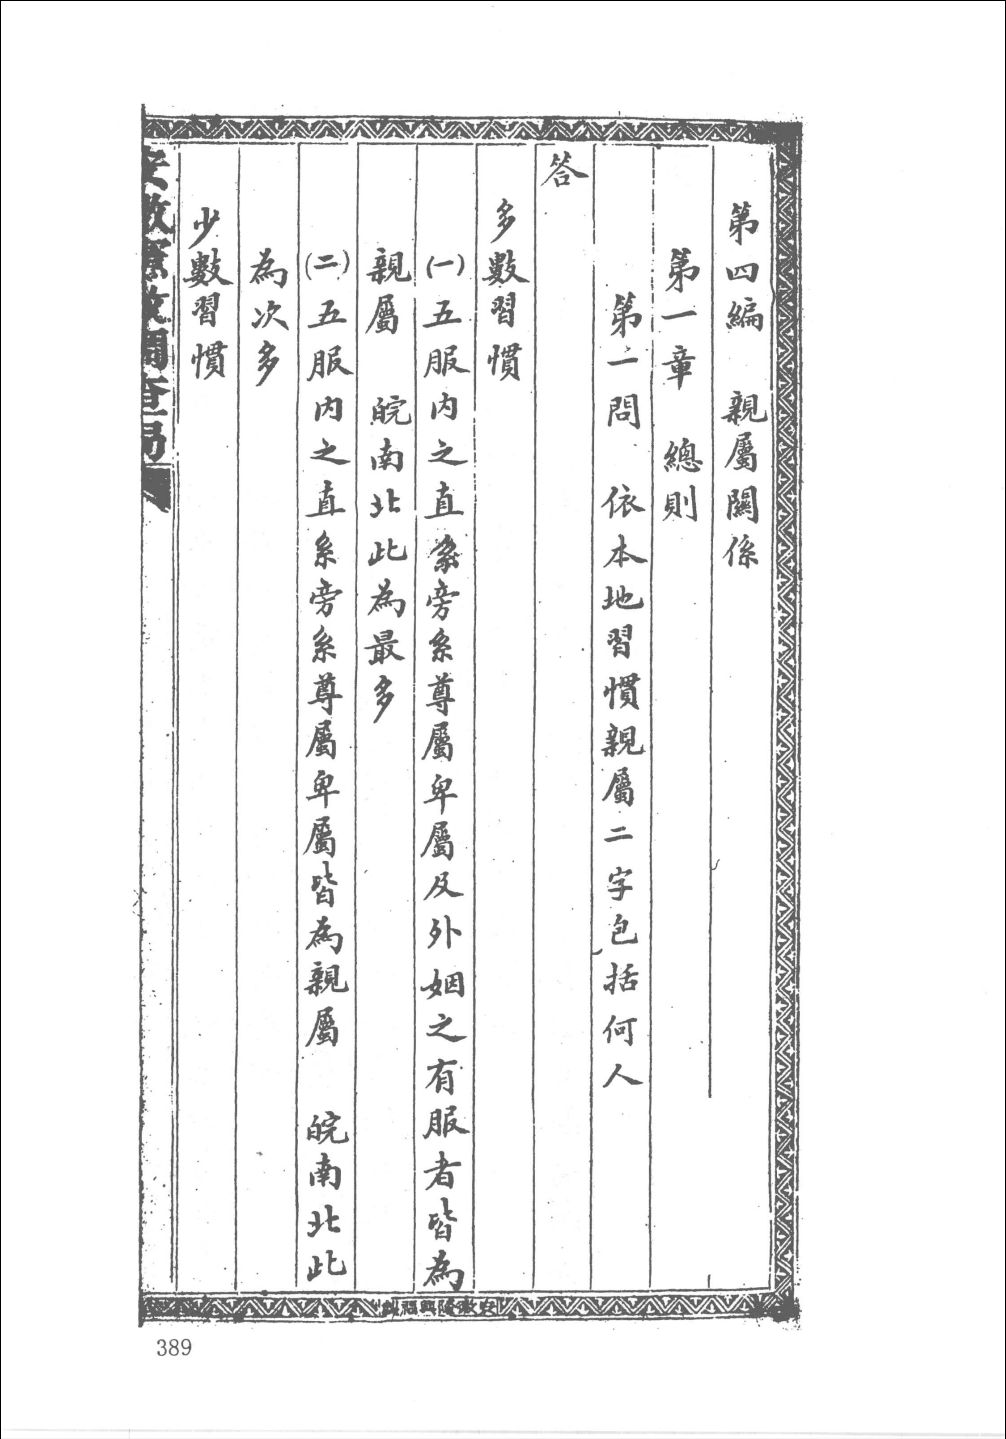 第四編　親屬關係
第一章　總則
第一問　依本地習慣親屬二字包括何人
答
多數習慣
(一)五服内之直系旁系尊屬卑屬及外姻之有服者皆為
親屬　皖南北此為最多
(二)五服内之直系旁系尊屬卑屬皆為親屬　皖南北此
為次多
少數習慣
安徽憲政調查局
389